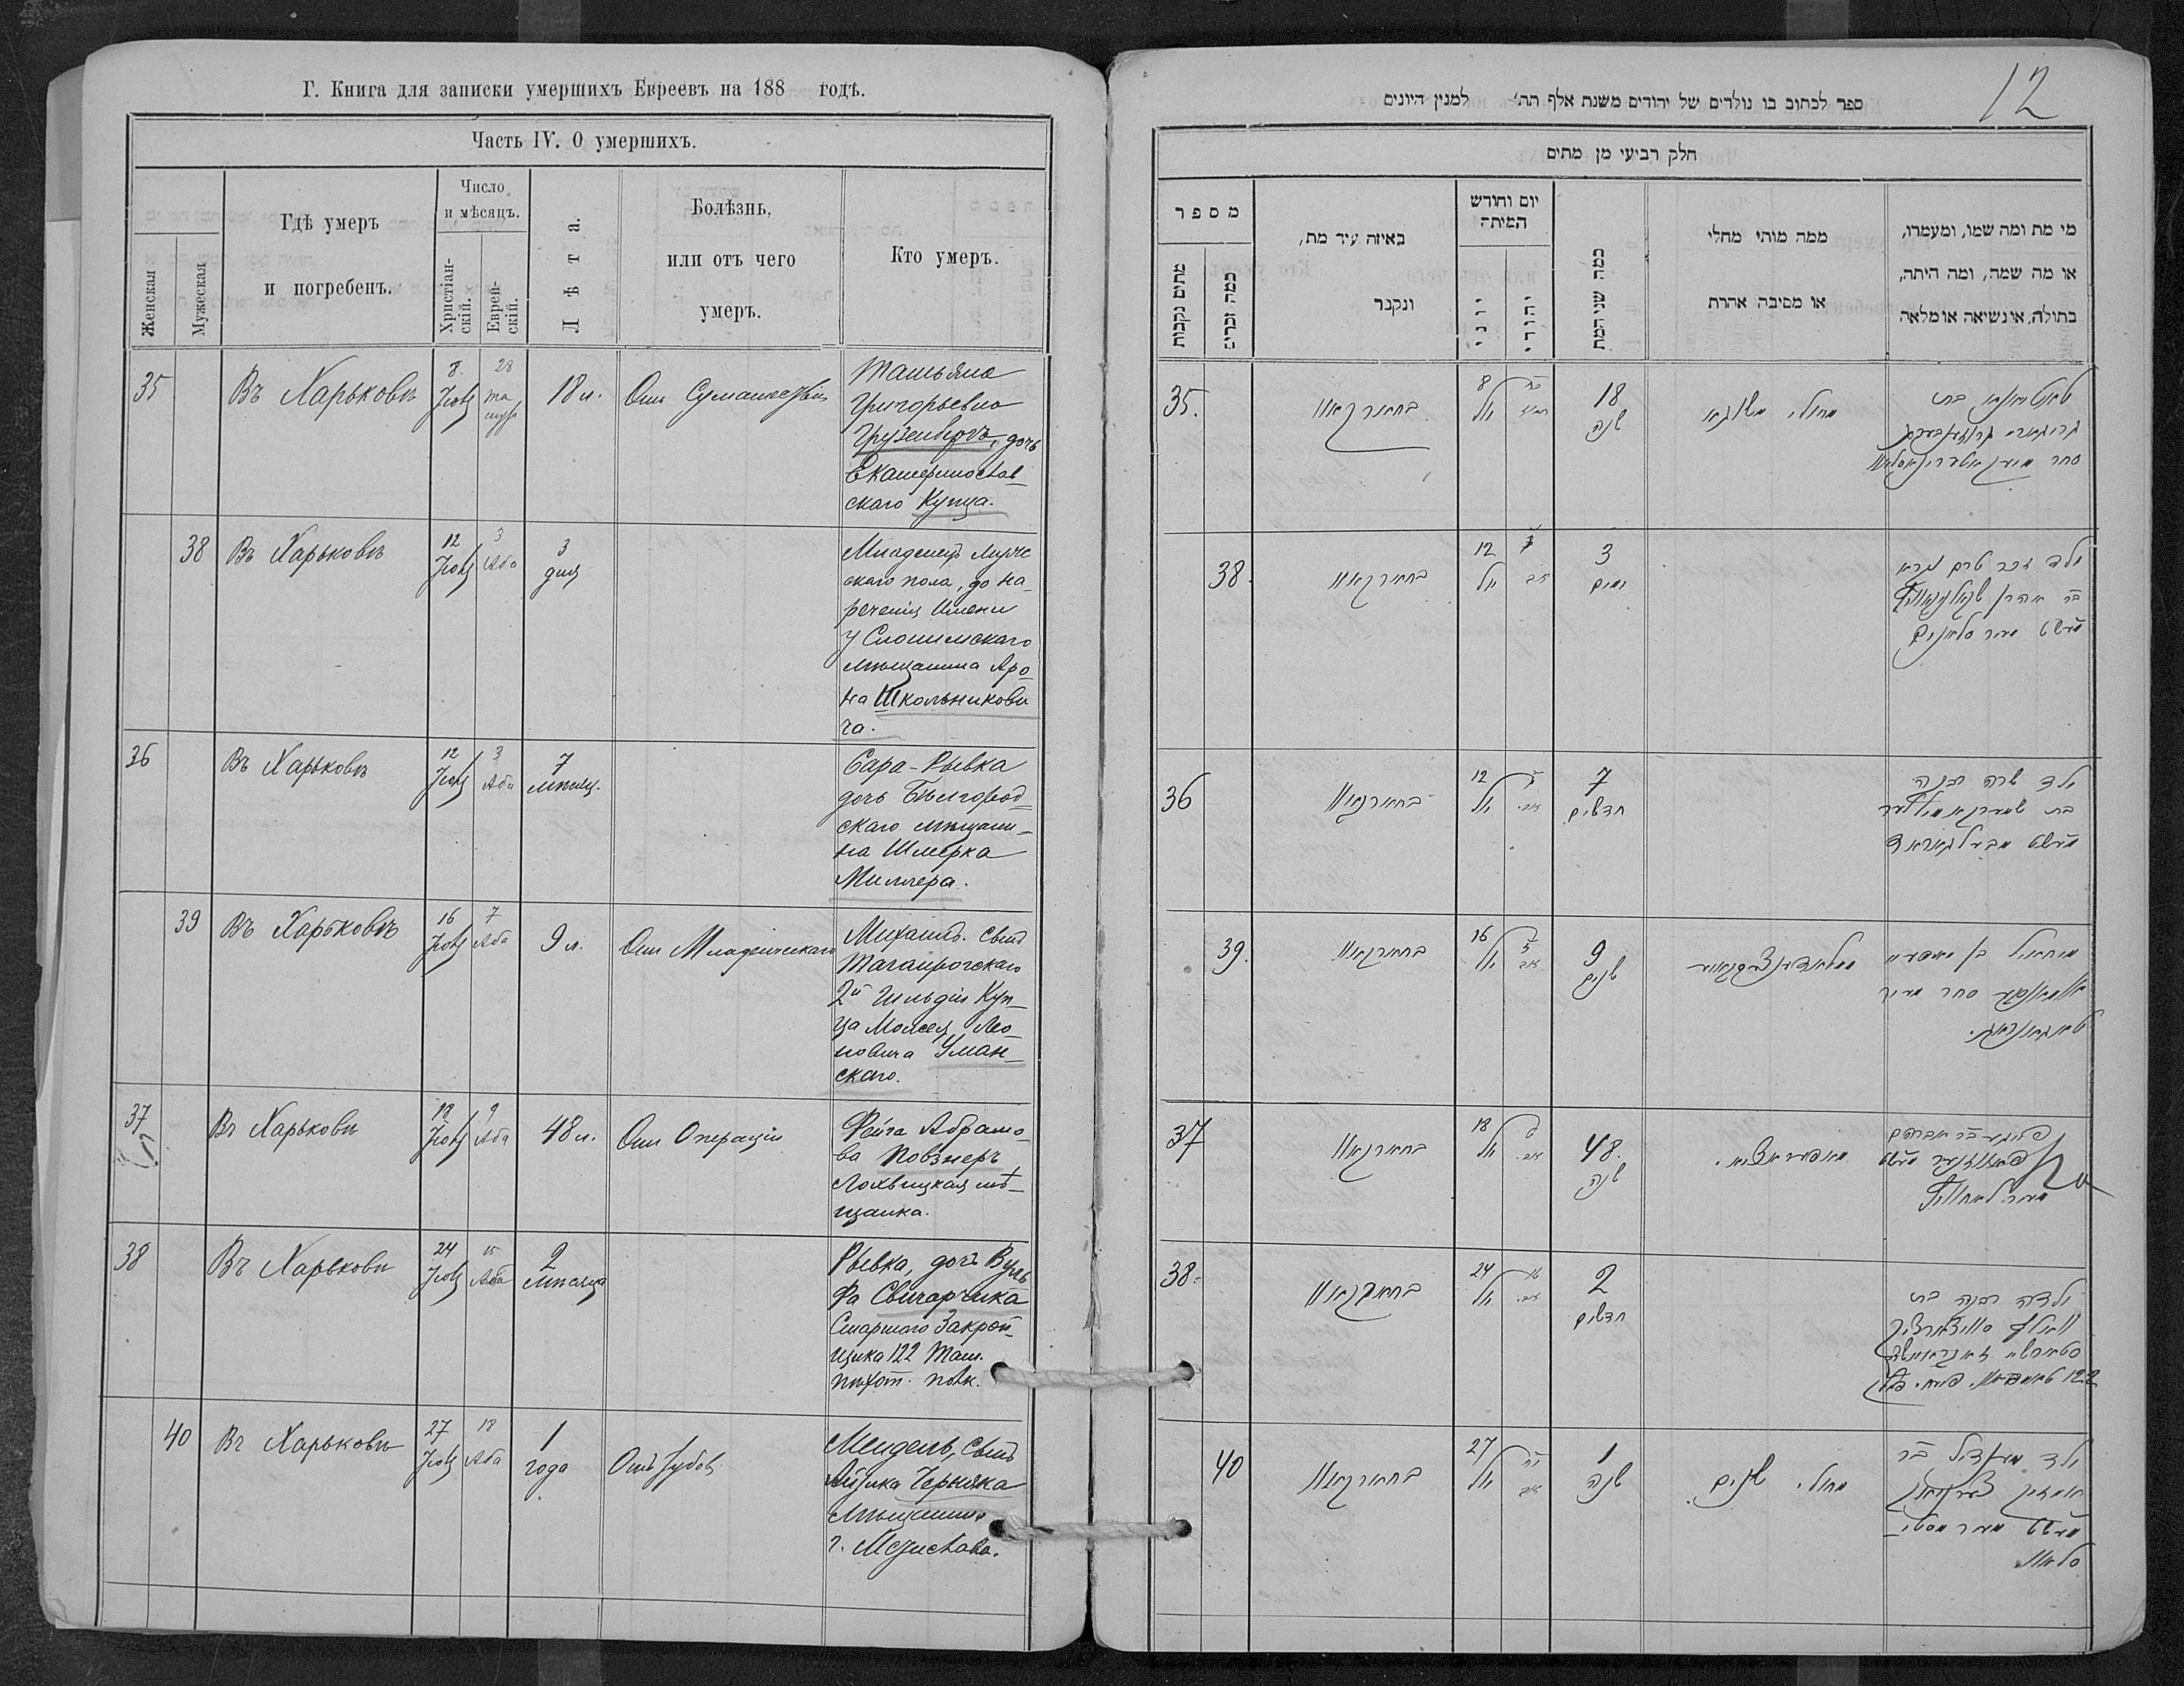 Г. Книга для записки умершихъ Евреевъ на 188 годъ.
Часть IV. О умершихъ.
Женская
Мужеская
Гдѣ умеръ
и погребенъ.
Число
и мѣсяцъ.
Христіан-
скій.
Еврей-
скій.
Лѣта.
Болѣзнь,
или отъ чего
умеръ.
Кто умеръ.
35
Въ Харьковѣ
8.
Іюля
28
Та
муза
18 л.
Отъ
Татьяна
Григорьевна
Грузенбергъ, дочь
Екатеринослав-
скаго Купца.
38
Въ Харьковѣ
12
Іюля
3
Аба
3
дня
Младенецъ муже
скаго пола, до на-
реченія имени
у Слонимскаго
мѣщанина Аро-
на Школьникови
ча.
36
Въ Харьковѣ
12
Іюля
3
Аба
7
мѣсяц.
Сара-Рывка
дочь Бѣлгород-
скаго мѣщани-
на Шмерка
Миллера.
39
Въ Харьковѣ
16
Іюля
7
Аба
9 л.
Отъ Младенческаго
Михаилъ. сынъ
Таганрогскаго
2й Гильдіи Куп-
ца Моисея Лео-
новича Уман-
скаго.
37
Въ Харьковѣ
18
Іюля
9
Аба
48 л.
Отъ Операціи
Фейга Абрамо-
ва Повзнеръ
Лохвицкая мѣ-
щанка.
38
Въ Харьковѣ
24
Іюля
15
Аба
2
мѣсяца
Рывка, дочь Вуль
фа Свичарчика
Старшаго Закрой-
щика 122 Там.
пѣхот. полк.
40
Въ Харьковѣ
27
Іюля
18
Аба
1
года
Отъ Зубовъ
Мендель, сынъ
Айзика Черняка
мѣщанина
г. Мстиславо.
12
ספר לכתוב בו נולדים של יהודים משנת אלף תת׳ למנין היונים
חלק רביעי מן מתים
מספר
מתים נקבות
כמה זכרים
באיזה עיר מת,
ונקבר
יום וחודש
המיתה
יוני
יהודי
כמה שני המת
ממה מותי מחלי
או מסיבה אהרת
מי מת ומה שמו, ומעמרו,
או מה שמה, ומה היתה,
בתולה, אינשיאה אומלאה
35.
בחארקאוו
8
יול
כח
תמוז
18
שנה
38.
בחארקאוו
12
יול
אב
3
ימים
ילד זכר טרם נקרא
36
בחארקאוו
12
יול
ג
אב
7
חדשים
ילד שרה רבקה
39.
בחארקאוו
16
יול
ז
אב
9
שנים
37
בחארקאוו
18
יול
ט
אב
48.
שנה
מאפעראציא.
38.
בחארקאוו
24
יול
אב
2
חדשים
ילדה רבקה בת
40
בחארקאוו
27
יול
יח
אב
1
שנה
מחולי שנים
ילד מענדיל בר